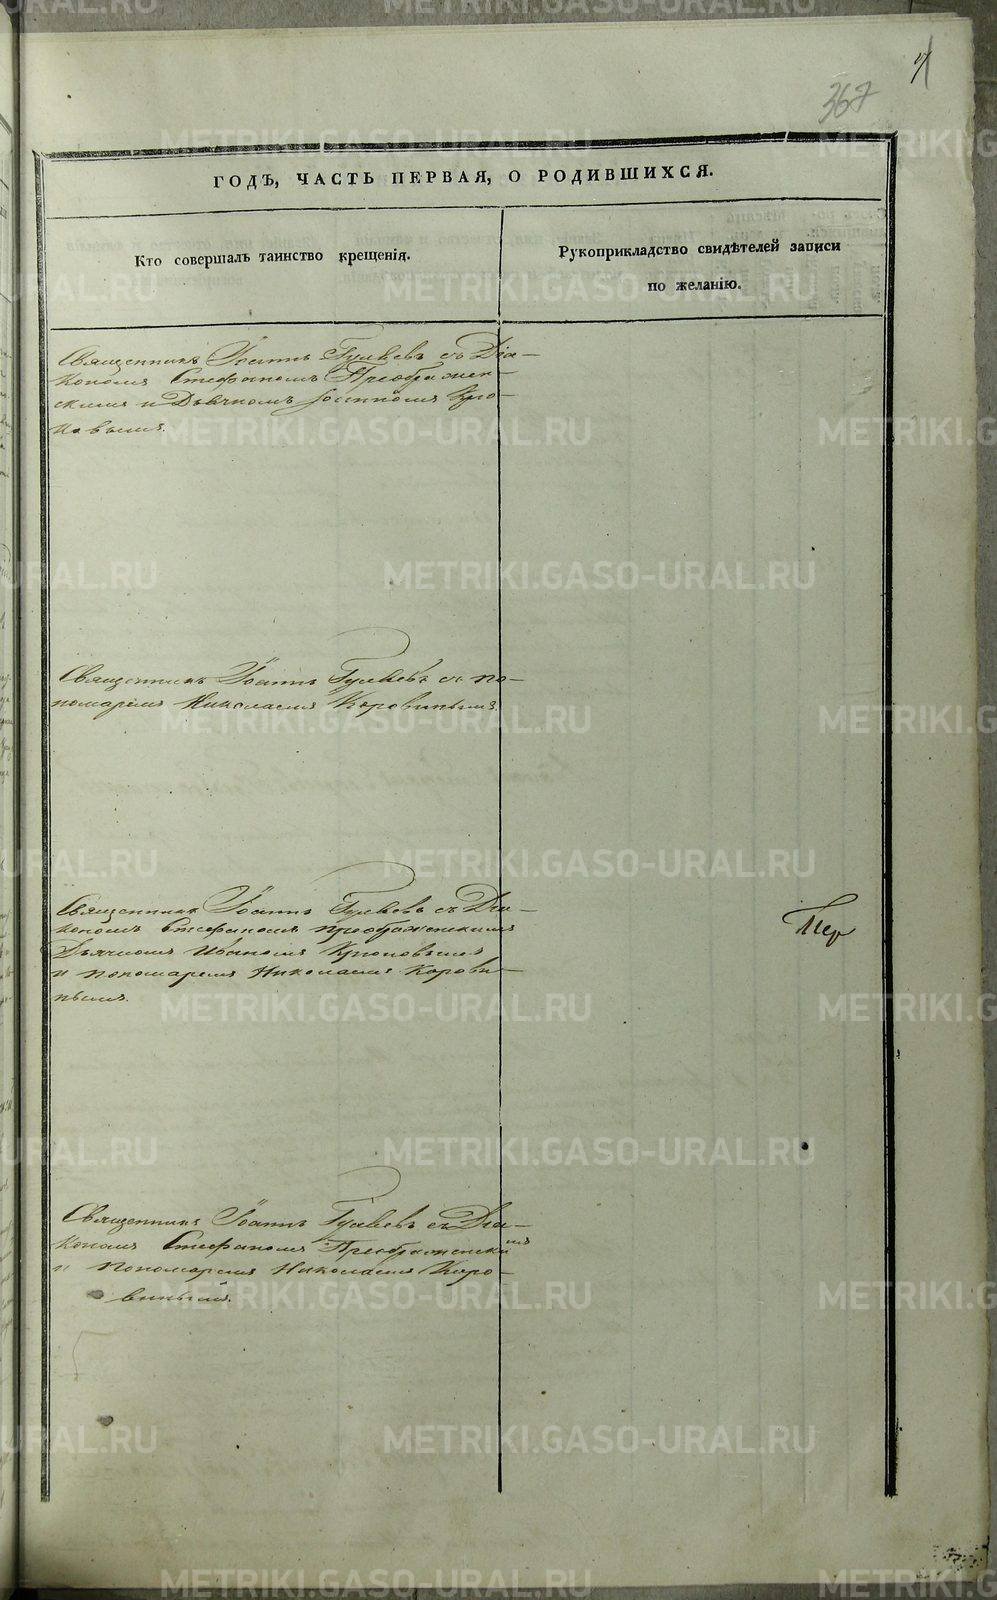 367
ГОДЪ, ЧАСТЬ ПЕРВАЯ, О РОДИВШИХСЯ.
Кто совершалъ таинство крещенія.
Рукоприкладство свидѣтелей записи
по желанію.
Священникъ Іоаннъ Гуляевъ съ Діа-
кономъ Стефаномъ Преображен-
скимъ и Дьячкомъ
Священникъ Іоаннъ Гуляевъ съ по-
номаремъ Николаемъ Коровинымъ.
Священникъ Іоаннъ Гуляевъ съ Діа-
кономъ Стефаномъ Преображенскимъ
Дьячкомъ Иваномъ
и пономаремъ Николаемъ Корови-
нымъ.
Пер
Священникъ Іоаннъ Гуляевъ съ Діа-
кономъ Стефаномъ Преображенскимъ
и Пономаремъ Николаемъ Коро-
винымъ.
METRIKI.GASO-URAL.RU